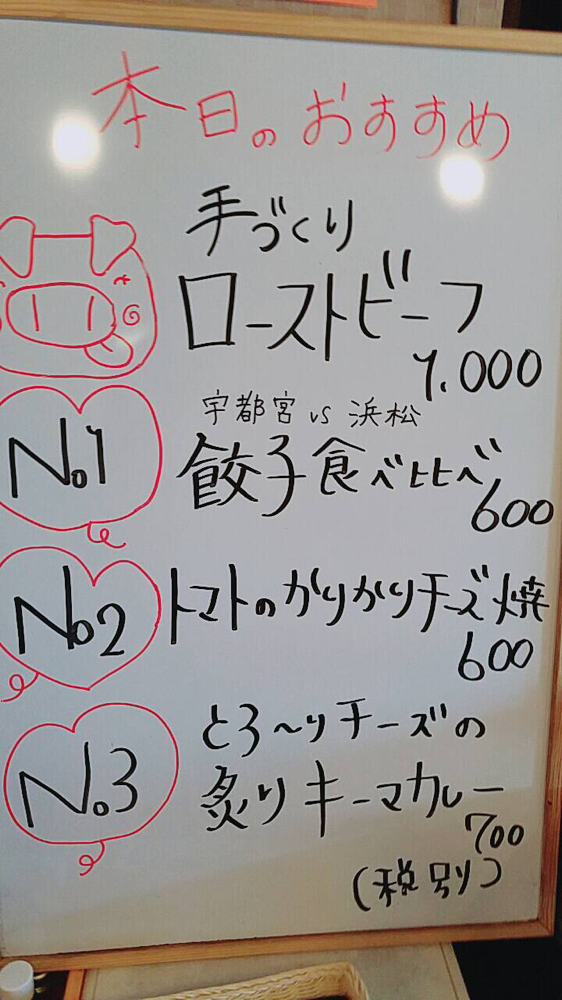 本日のおすすめ
手づくり
ローストビーフ
1.000
No.1
宇都宮 vs 浜松
餃子食べ比べ
600
No.2
トマトのカリカリチーズ焼
600
No.3
とろ〜りチーズの
炙りキーマカレー
700
(税別)